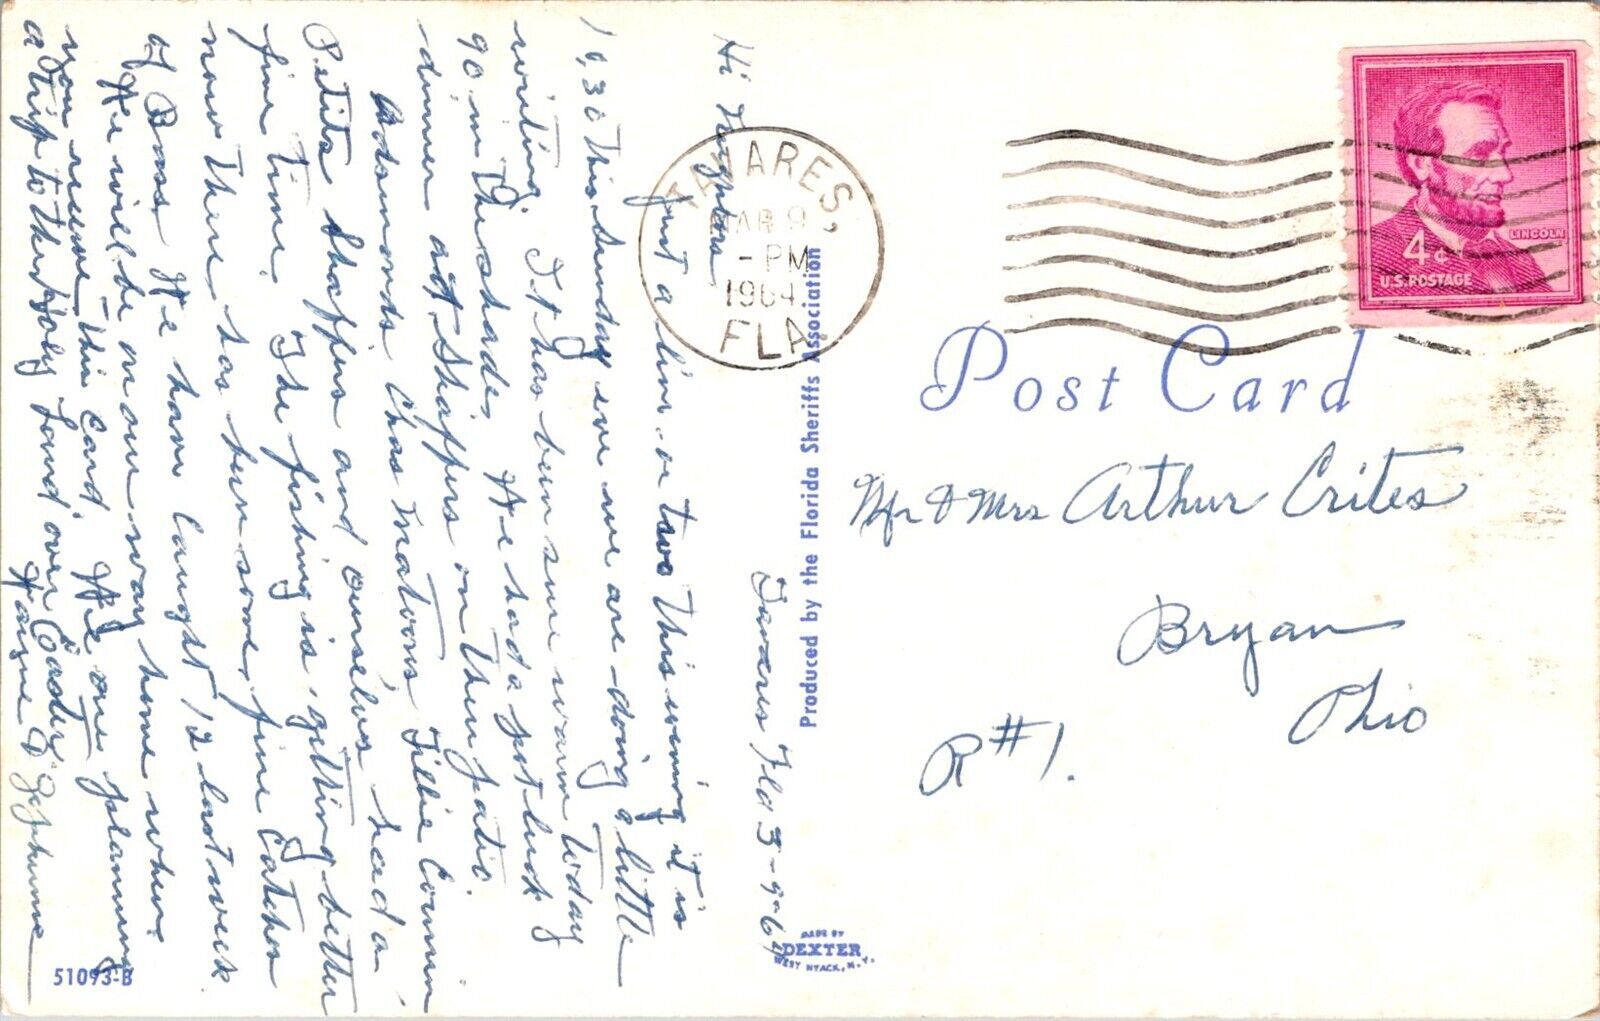 Tavares Fla 3-9-64
Hi Neighbors
Just a line or two this evening it is
6,30 This Sunday eve we are doing a little
writing. It has been some warm today
90, in the shade, We had a pot luck
dinner at Shaffers on their patio.
Adsmonds, Chas Matoons, Tillie
Petits Shaffers and ourselves had a
fine time. The fishing is getting better
now there has been some fine catches
of Bass, We have caught 12 last week
We will be on our way home when
you receive this card, We are planning
a trip to the Holy Land over Easter
Wayne & Josephine
51093-B
TAVARES,
9
-PM
1964
FLA
Produced by the Florida Sheriffs Association
MADE BY
DEXTER
WEST NYACK, N.Y.
LINCOLN
4¢
U.S. POSTAGE
Post Card
Mr & Mrs Arthur Crites
Bryan
Ohio
R#1.